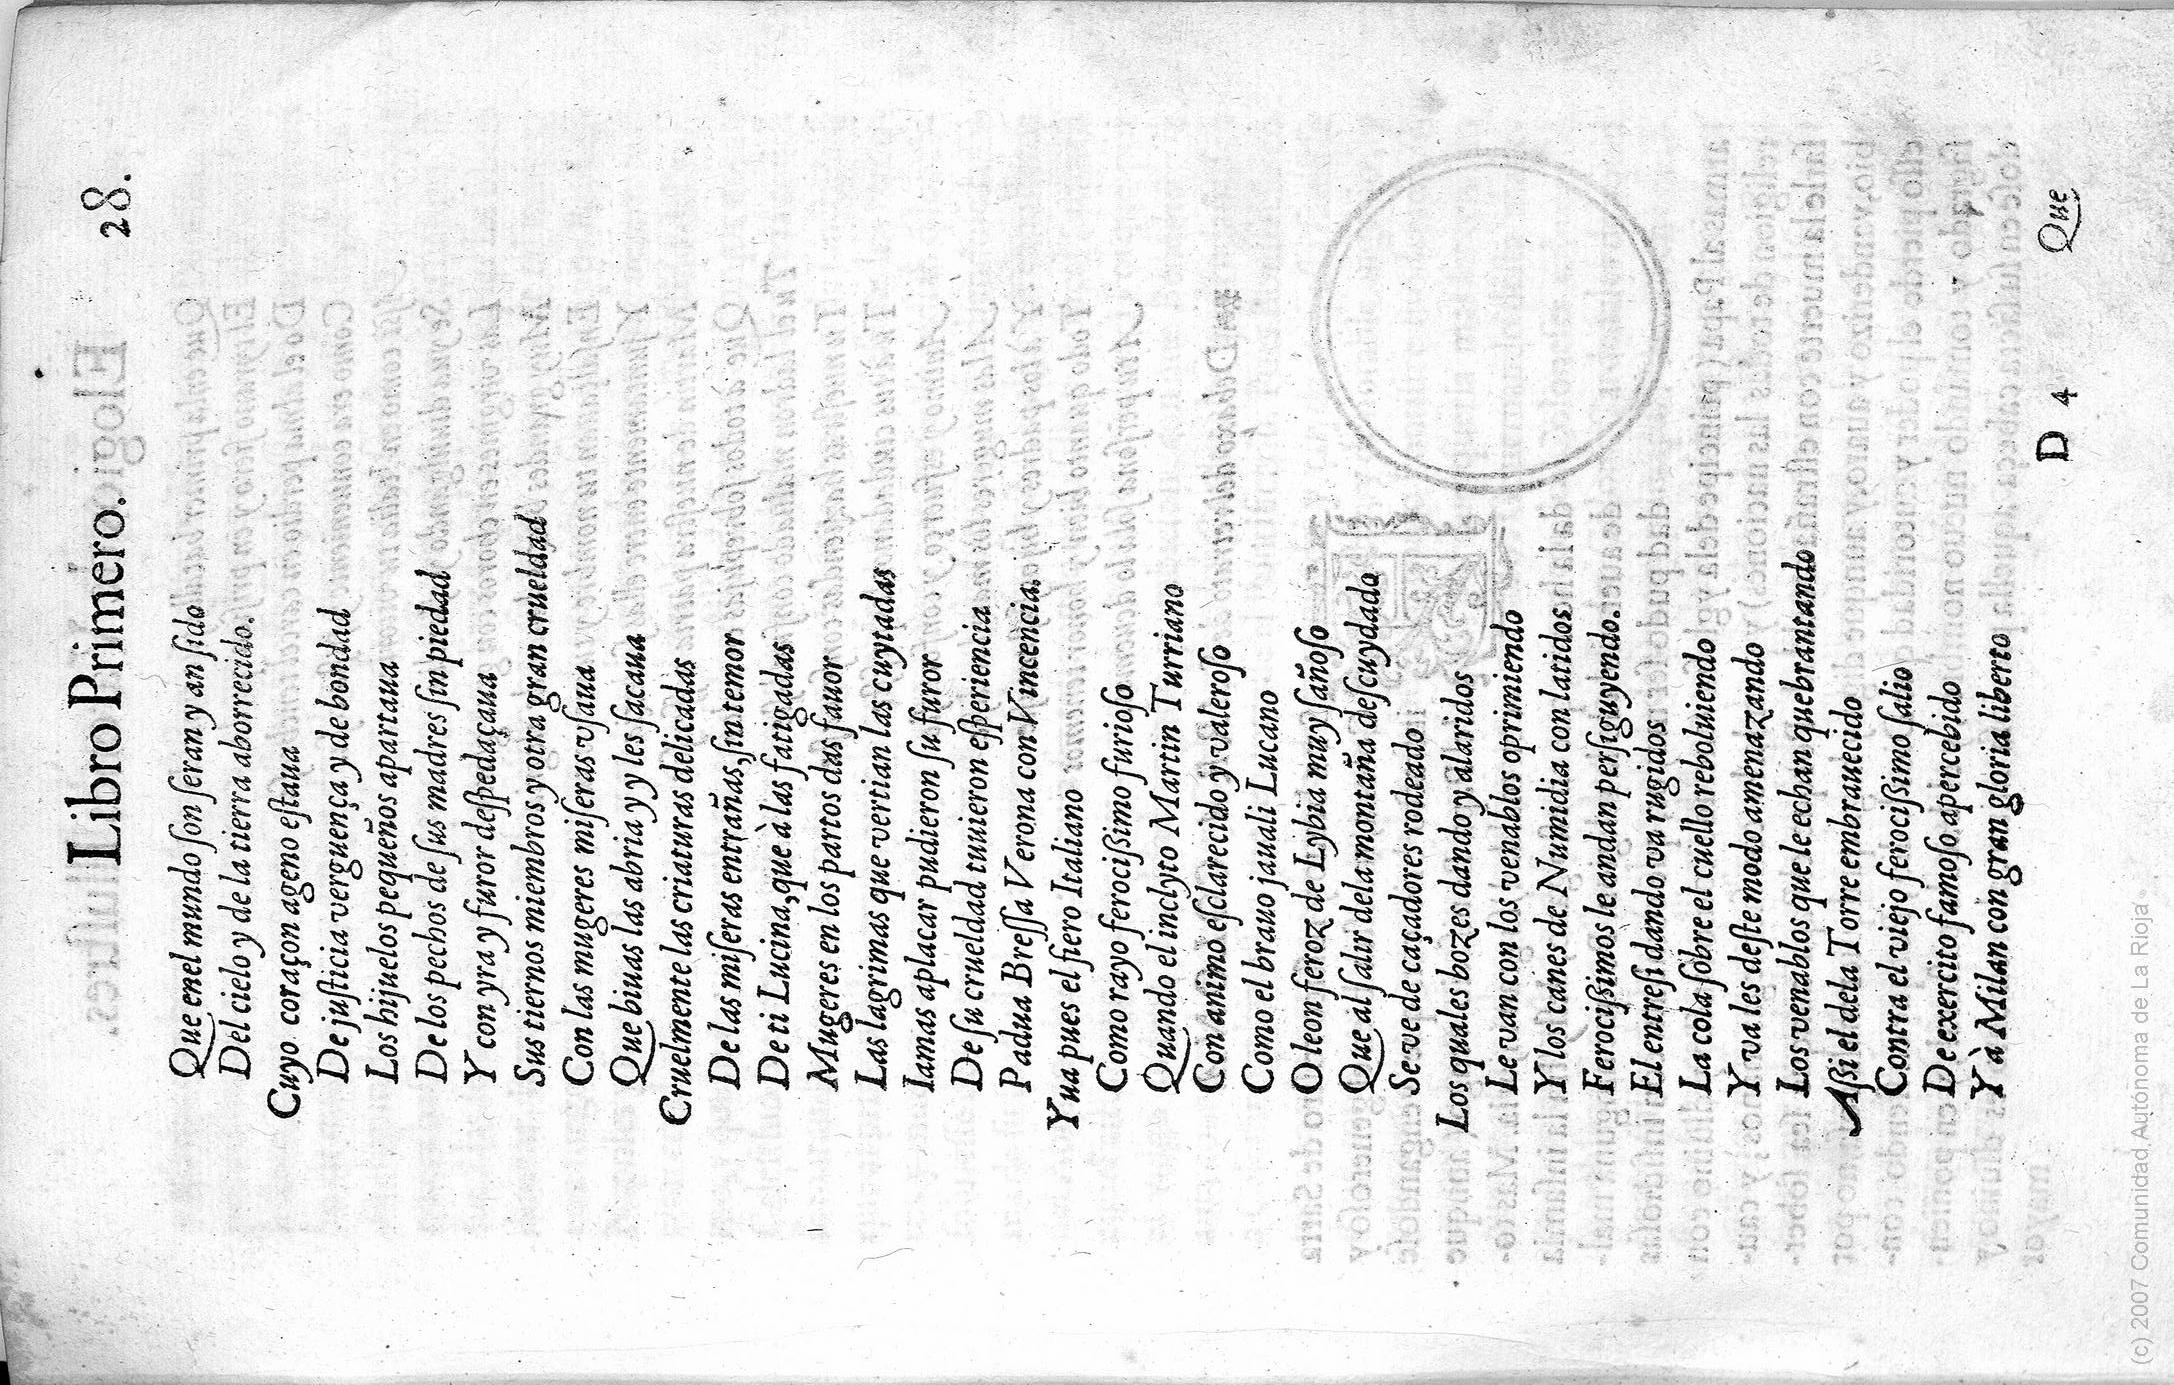 Libro Primero. 28.
Que enel mundo ſon ſeran y an ſido
Del cielo y de la tierra aborrecido.
Cuyo coraçon ageno eſtaua
De juſticia verguença y de bondad
Los hijuelos pequeños apartaua
De los pechos de ſus madres ſin piedad
Y con yra y furor deſpedaçaua
Sus tiernos miembros y otra gran crueldad
Con las mugeres miſeras vſaua
Que biuas las abria y y les ſacaua
Cruelmente las criaturas delicadas
De las miſeras entrañas, ſin temor
De ti Lucina, que à las fatigadas
Mugeres en los partos das fauor
Las lagrimas que vertian las cuytadas
Iamas aplacar pudieron ſu furor
De ſu crueldad tuuieron eſperiencia
Padua Breſſa Verona con Vincencia.
Yua pues el fiero Italiano
Como rayo ferociſsimo furioſo
Quando el inclyto Martin Turriano
Con animo eſclarecido y valeroſo
Como el brauo jauali Lucano
O leon feroz de Lybia muy ſañoſo
Que al ſalir dela montaña deſcuydado
Se ve de caçadores rodeado
Los quales bozes dando y alaridos
Le van con los venablos oprimiendo
Y los canes de Numidia con laridos
Ferociſsimos le andan perſiguyendo.
El entreſi dando va rugidos
La cola ſobre el cuello reboluiendo
Y va les deſte modo amenazando
Los venablos que le echan quebrantando
Aſsi el dela Torre embrauecido
Contra el viejo ferociſsimo ſalio
De exercito famoſo apercebido
Y à Milan con gran gloria liberto
D 4 Que
(c) 2007 Comunidad Autónoma de La Rioja